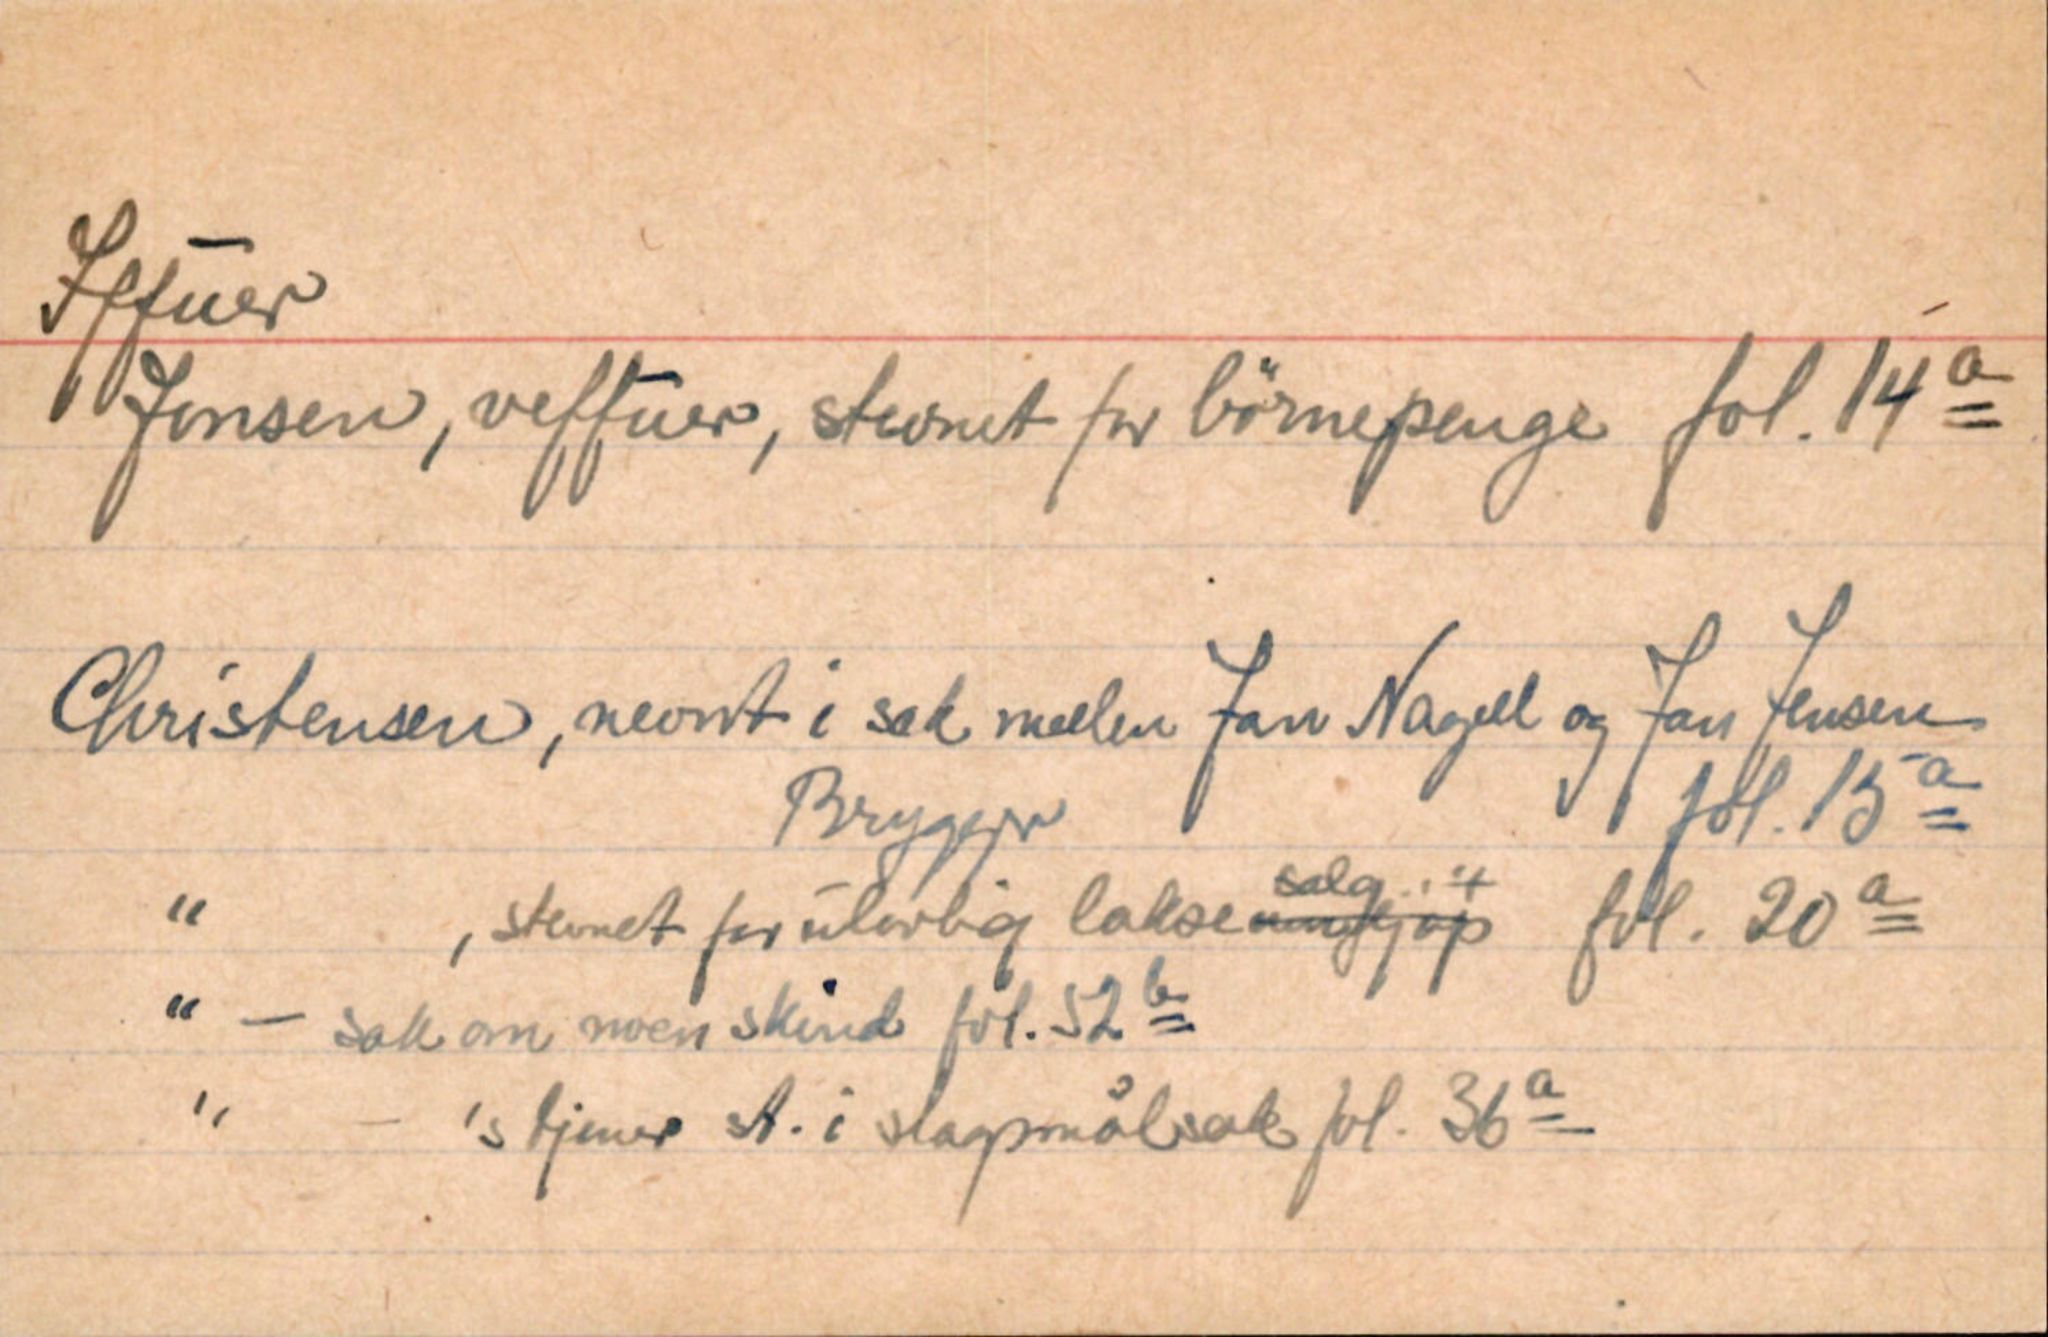 Iffuer
Jonsen, veffuer, stevnet for börnepenge fol. 14 a
Christensen, nevnt i sak mellem Jan Nagell og Jan Jensen
Brygger fol. 15 a
" , stevnet for ulovlig lakse salg fol. 20 a
" – sak om noen skind fol. 52 b
" – 's tjener st. i slagsmålsak fol. 36 a